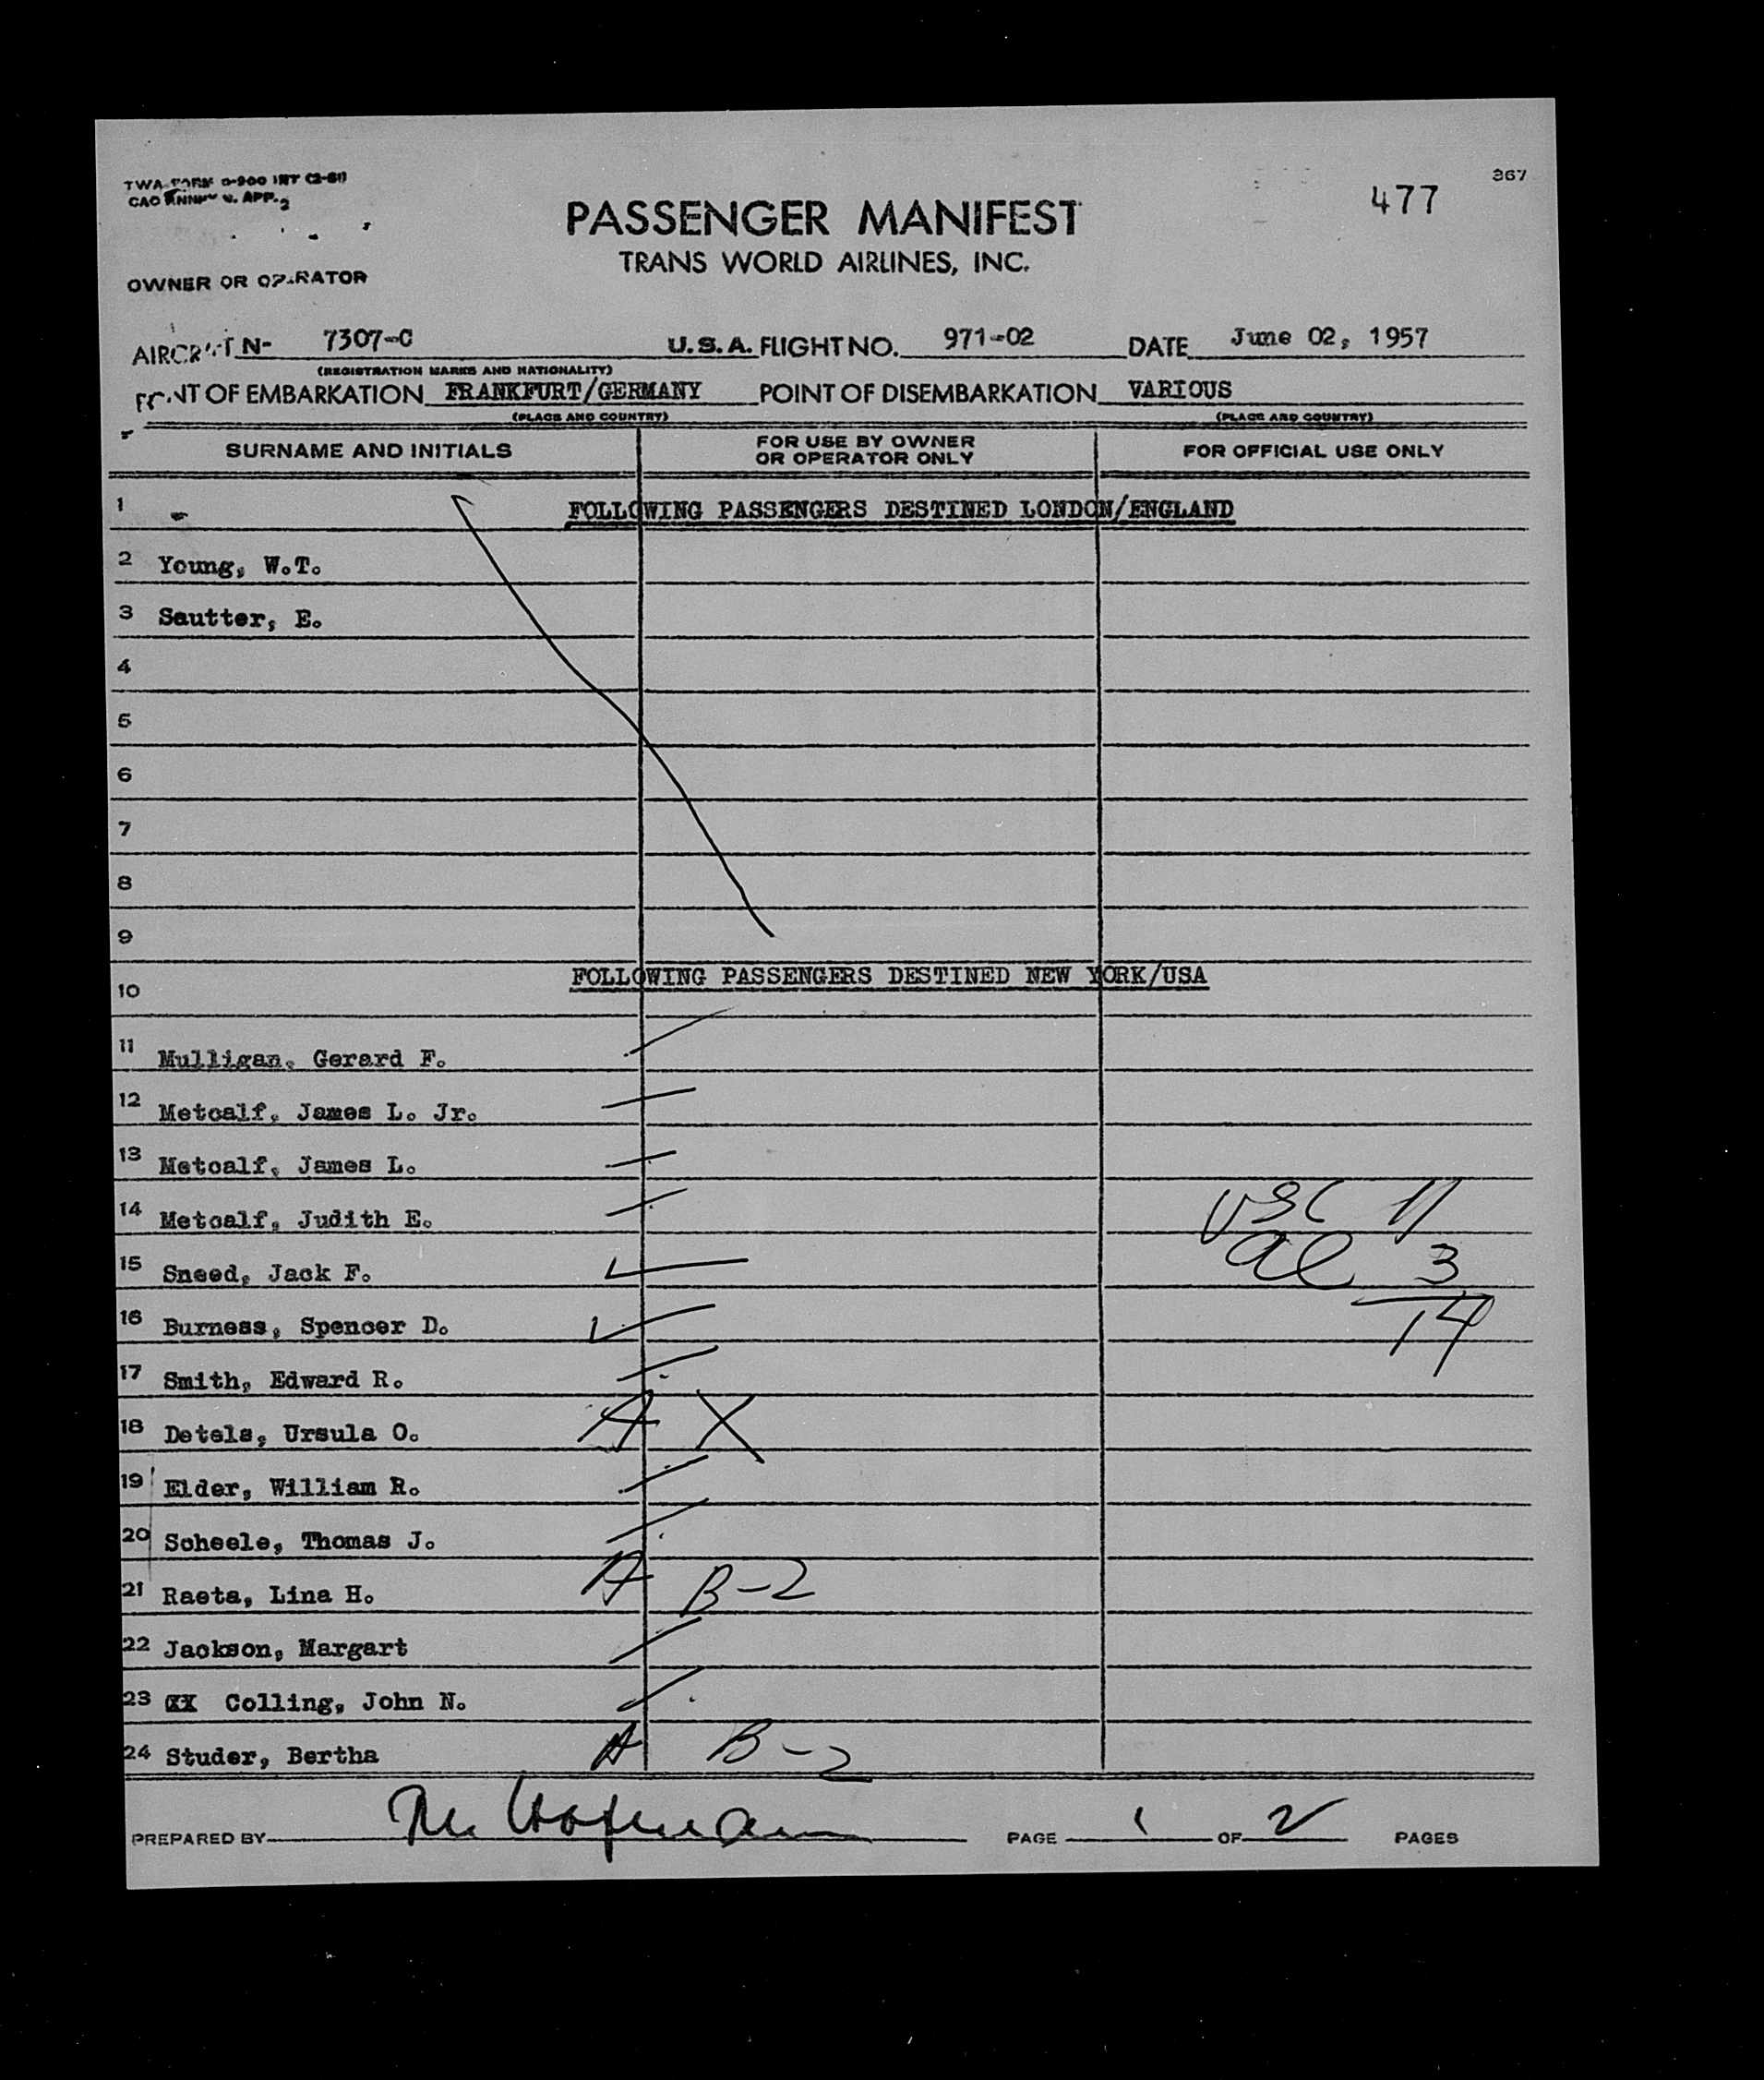 367
477
PASSENGER MANIFEST
TRANS WORLD AIRLINES, INC.
OWNER OR OPERATOR
AIRCRAFT N- 7307-C U.S.A. FLIGHT NO. 971-02 DATE June 02, 1957
(REGISTRATION MARKS AND NATIONALITY)
POINT OF EMBARKATION FRANKFURT/GERMANY POINT OF DISEMBARKATION VARIOUS
(PLACE AND COUNTRY) (PLACE AND COUNTRY)
SURNAME AND INITIALS FOR USE BY OWNER OR OPERATOR ONLY FOR OFFICIAL USE ONLY
1 FOLLOWING PASSENGERS DESTINED LONDON/ENGLAND
2 Young, W.T.
3 Sautter, E.
4
5
6
7
8
9
10 FOLLOWING PASSENGERS DESTINED NEW YORK/USA
11 Mulligan, Gerard F.
12 Metcalf, James L. Jr.
13 Metcalf, James L.
14 Metcalf, Judith E. USC 11
15 Sneed, Jack F. al 3
16 Burness, Spencer D. 14
17 Smith, Edward R.
18 Detels, Ursula O. A X
19 Elder, William R.
20 Scheele, Thomas J.
21 Raeta, Lina H. A B-2
22 Jackson, Margart
23 XX Colling, John N.
24 Studer, Bertha A B-2
PREPARED BY PAGE 1 OF 2 PAGES